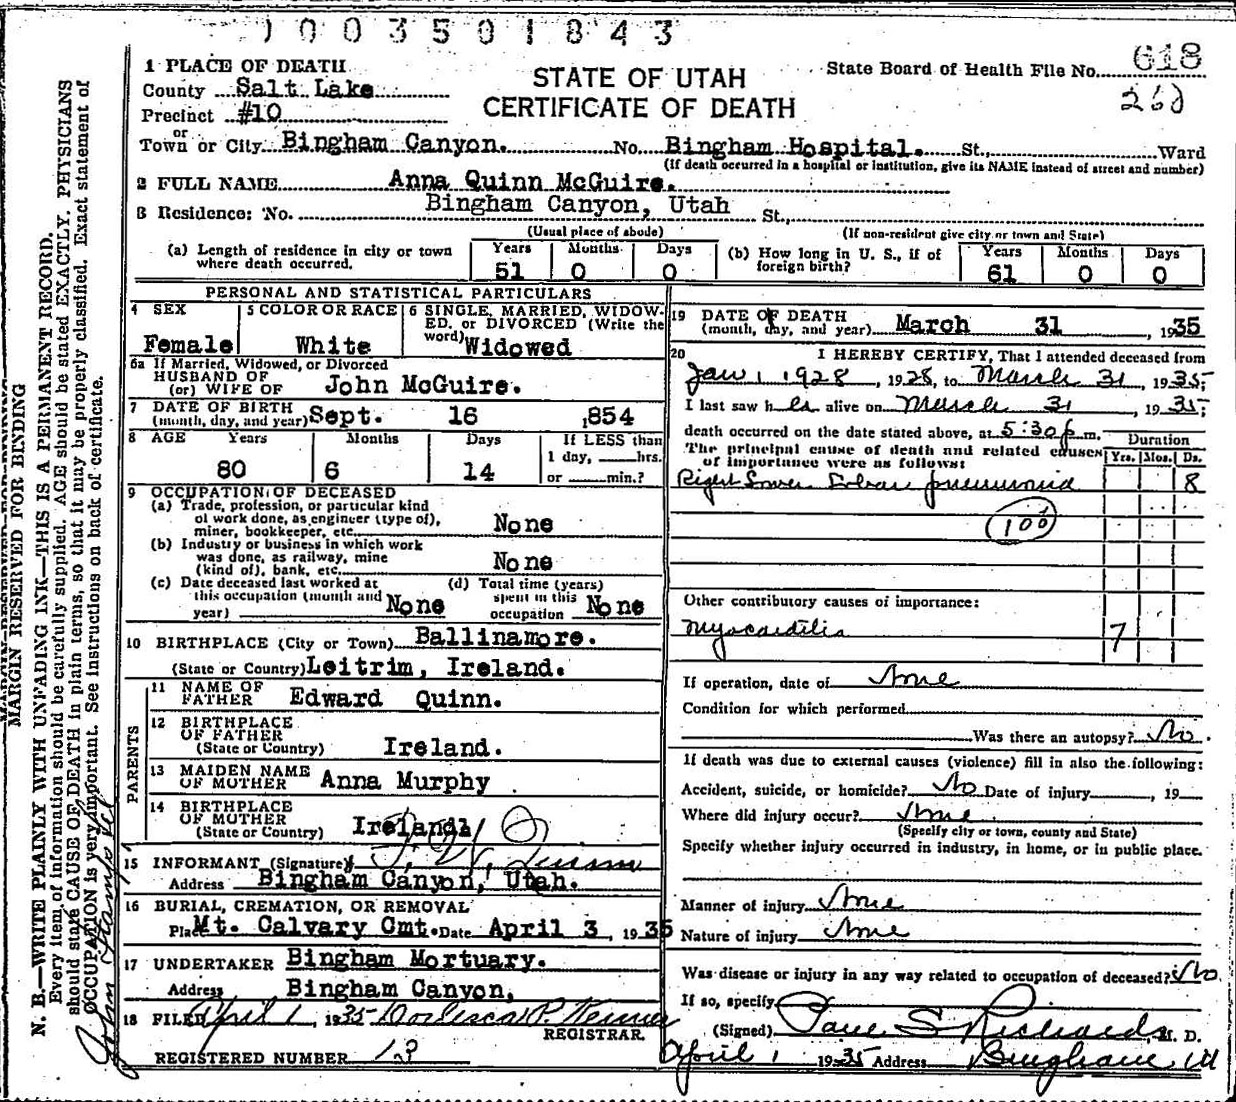 1003501843
1 PLACE OF DEATH
County Salt Lake
Precinct #10
or
Town or City Bingham Canyon. No. Bingham Hospital. St., Ward
STATE OF UTAH
CERTIFICATE OF DEATH
State Board of Health File No. 618
260
(If death occurred in a hospital or institution, give its NAME instead of street and number)
2 FULL NAME Anna Quinn McGuire.
3 Residence: No. Bingham Canyon, Utah St.,
(Usual place of abode) (If non-resident give city or town and State)
(a) Length of residence in city or town where death occurred. Years 51 Months 0 Days 0
(b) How long in U. S., if of foreign birth? Years 61 Months 0 Days 0
PERSONAL AND STATISTICAL PARTICULARS
4 SEX Female
5 COLOR OR RACE White
6 SINGLE, MARRIED, WIDOWED, or DIVORCED (Write the word) Widowed
6a If Married, Widowed, or Divorced
HUSBAND OF
(or) WIFE OF John McGuire.
7 DATE OF BIRTH
(month, day, and year) Sept. 16 1854
8 AGE Years 80 Months 6 Days 14
If LESS than
1 day, hrs.
or min.?
9 OCCUPATION OF DECEASED
(a) Trade, profession, or particular kind
of work done, as engineer (type of),
miner, bookkeeper, etc. None
(b) Industry or business in which work
was done, as railway, mine
(kind of), bank, etc. None
(c) Date deceased last worked at
this occupation (month and
year) None
(d) Total time (years)
spent in this
occupation None
10 BIRTHPLACE (City or Town) Ballinamore.
(State or Country) Leitrim, Ireland.
PARENTS
11 NAME OF
FATHER Edward Quinn.
12 BIRTHPLACE
OF FATHER
(State or Country) Ireland.
13 MAIDEN NAME
OF MOTHER Anna Murphy
14 BIRTHPLACE
OF MOTHER
(State or Country) Ireland.
15 INFORMANT (Signature) J. W. Quinn
Address Bingham Canyon, Utah.
16 BURIAL, CREMATION, OR REMOVAL
Place Mt. Calvary Cmt. Date April 3, 1935
17 UNDERTAKER Bingham Mortuary.
Address Bingham Canyon,
18 FILED April 1, 1935 P.
REGISTRAR.
REGISTERED NUMBER 13
19 DATE OF DEATH
(month, day, and year) March 31 1935
20 I HEREBY CERTIFY, That I attended deceased from
Jan 1 1928, 1928, to March 31, 1935;
I last saw her alive on March 31, 1935;
death occurred on the date stated above, at 5:30 p. m.
The principal cause of death and related causes
of importance were as follows:
Duration
Yrs. Mos. Ds.
Right Lower Lobar pneumonia 8
100
Other contributory causes of importance:
Myocarditis 7
If operation, date of None
Condition for which performed
Was there an autopsy? No.
If death was due to external causes (violence) fill in also the following:
Accident, suicide, or homicide? No Date of injury, 19
Where did injury occur? None
(Specify city or town, county and State)
Specify whether injury occurred in industry, in home, or in public place.
Manner of injury None
Nature of injury None
Was disease or injury in any way related to occupation of deceased? No
If so, specify
(Signed) Paul S Richards, M. D.
April 1 1935 Address Bingham Ut
MARGIN RESERVED FOR BINDING
N. B.—WRITE PLAINLY WITH UNFADING INK—THIS IS A PERMANENT RECORD.
Every item of information should be carefully supplied. AGE should be stated EXACTLY. PHYSICIANS
should state CAUSE OF DEATH in plain terms, so that it may be properly classified. Exact statement of
OCCUPATION is very important. See instructions on back of certificate.
John